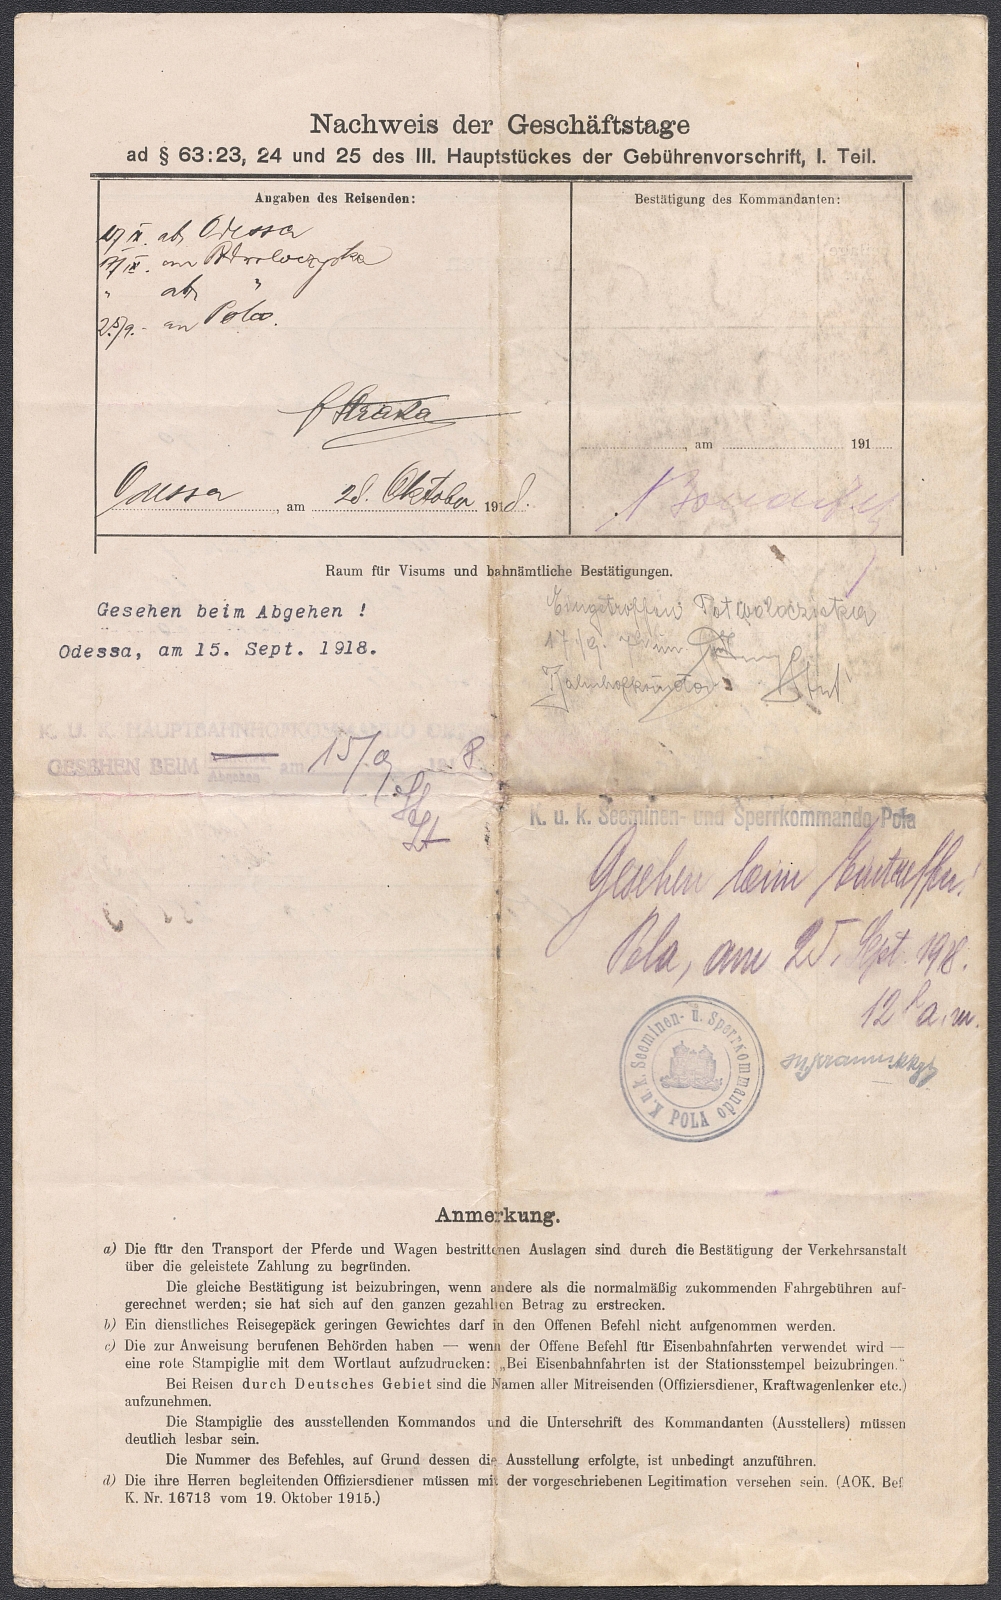 Nachweis der Geschäftstage
ad § 63:23, 24 und 25 des III. Hauptstückes der Gebührenvorschrift, I. Teil.
Angaben des Reisenden:
Bestätigung des Kommandanten:
ab Odessa
17/IX. an Podwoloczyska
" ab "
25/9.- an Pola.
Straka
, am 191
Odessa, am 28. Oktober 1918.
Raum für Visums und bahnämtliche Bestätigungen.
Gesehen beim Abgehen !
Odessa, am 15. Sept. 1918.
Eingetroffen Podwoloczyska
17/9.
Bahnhofkmdo
K. U. K. HAUPTBAHNHOFKOMMANDO
GESEHEN BEIM Abgehen am 15/9 1918
K. u. k. Seeminen- und Sperrkommando Pola
Gesehen beim Eintreffen!
Pola, am 25. Sept. 1918.
12h a. m.
K. u. k. Seeminen- u. Sperrkommando
POLA
Anmerkung.
a) Die für den Transport der Pferde und Wagen bestrittenen Auslagen sind durch die Bestätigung der Verkehrsanstalt
über die geleistete Zahlung zu begründen.
Die gleiche Bestätigung ist beizubringen, wenn andere als die normalmäßig zukommenden Fahrgebühren auf-
gerechnet werden; sie hat sich auf den ganzen gezahlten Betrag zu erstrecken.
b) Ein dienstliches Reisegepäck geringen Gewichtes darf in den Offenen Befehl nicht aufgenommen werden.
c) Die zur Anweisung berufenen Behörden haben — wenn der Offene Befehl für Eisenbahnfahrten verwendet wird —
eine rote Stampiglie mit dem Wortlaut aufzudrucken: „Bei Eisenbahnfahrten ist der Stationsstempel beizubringen."
Bei Reisen durch Deutsches Gebiet sind die Namen aller Mitreisenden (Offiziersdiener, Kraftwagenlenker etc.)
aufzunehmen.
Die Stampiglie des ausstellenden Kommandos und die Unterschrift des Kommandanten (Ausstellers) müssen
deutlich lesbar sein.
Die Nummer des Befehles, auf Grund dessen die Ausstellung erfolgte, ist unbedingt anzuführen.
d) Die ihre Herren begleitenden Offiziersdiener müssen mit der vorgeschriebenen Legitimation versehen sein. (AOK. Bef.
K. Nr. 16713 vom 19. Oktober 1915.)